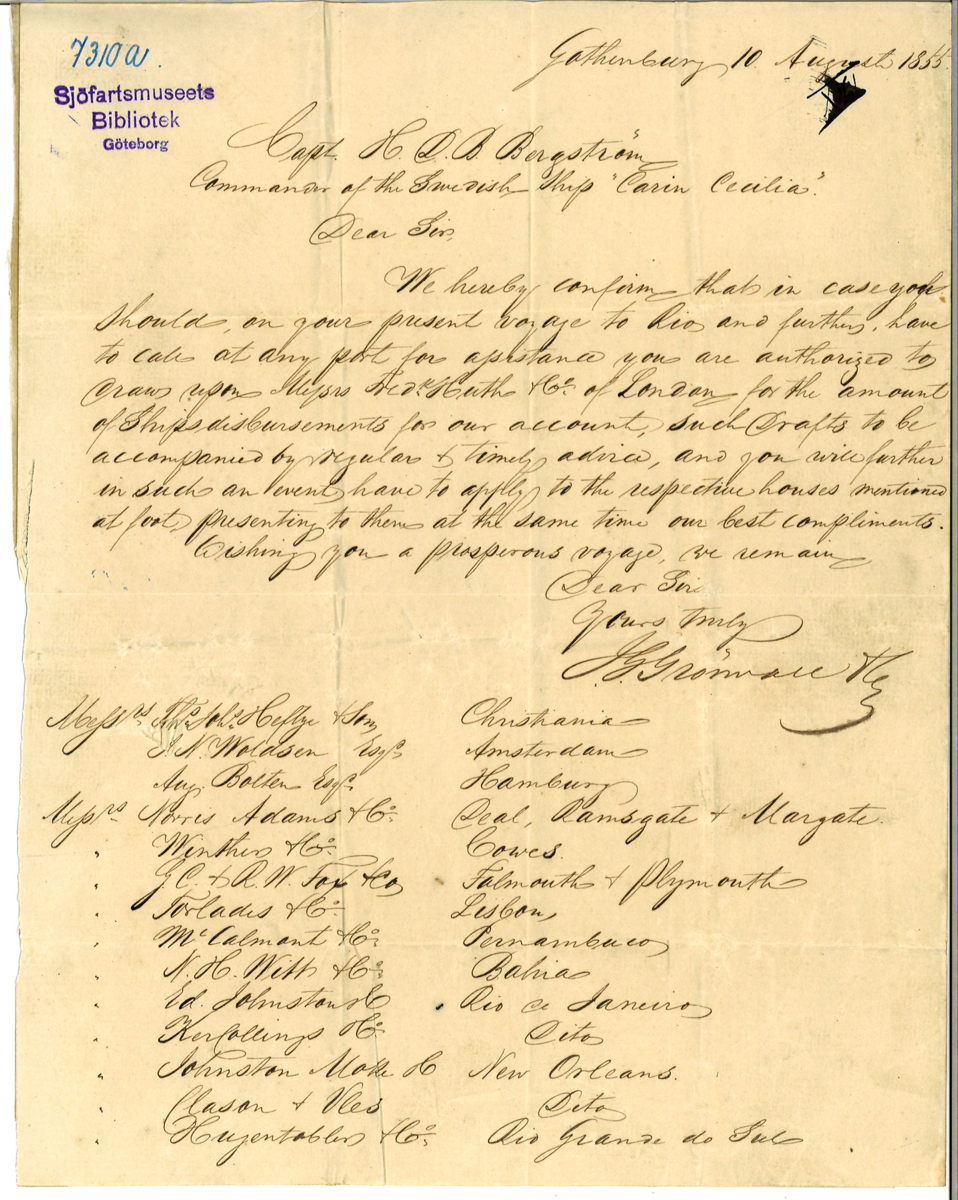 7310a.
Sjöfartsmuseets
Bibliotek
Göteborg
Gothenburg 10 August 1855.
Capt. H. D. B. Bergström
Commander of the Swedish Ship "Carin Cecilia".
Dear Sir,
We hereby confirm that in case you
should, on your present voyage to Rio and further, have
to call at any port for assistance you are authorized to
draw upon Messrs Fredk Huth & Co. of London for the amount
of Ships disbursements for our account, such Drafts to be
accompanied by regular & timely advice, and you will further
in such an event have to apply to the respective houses mentioned
at foot, presenting to them at the same time our best compliments.
Wishing you a prosperous voyage, we remain
Dear Sir
Yours truly
J. G. Grönvall & Co
Messrs Ths. Johs. Heftye & Son Christiania
J. N. Woldsen Esqr. Amsterdam
Aug. Bolten Esqr. Hamburg
Messrs. Norris Adams & Co. Deal, Ramsgate & Margate.
" Winther & Co. Cowes.
" G. C. & R. W. Fox & Co Falmouth & Plymouth
" Torlades & Co. Lisbon
" McCalmont & Co. Pernambuco
" N. H. Witt & Co. Bahia
" Ed. Johnston & C Rio de Janeiro
" & Co. Dito
" Johnston & C New Orleans.
" Clason & Vles Dito
" & Co. Rio Grande do Sul